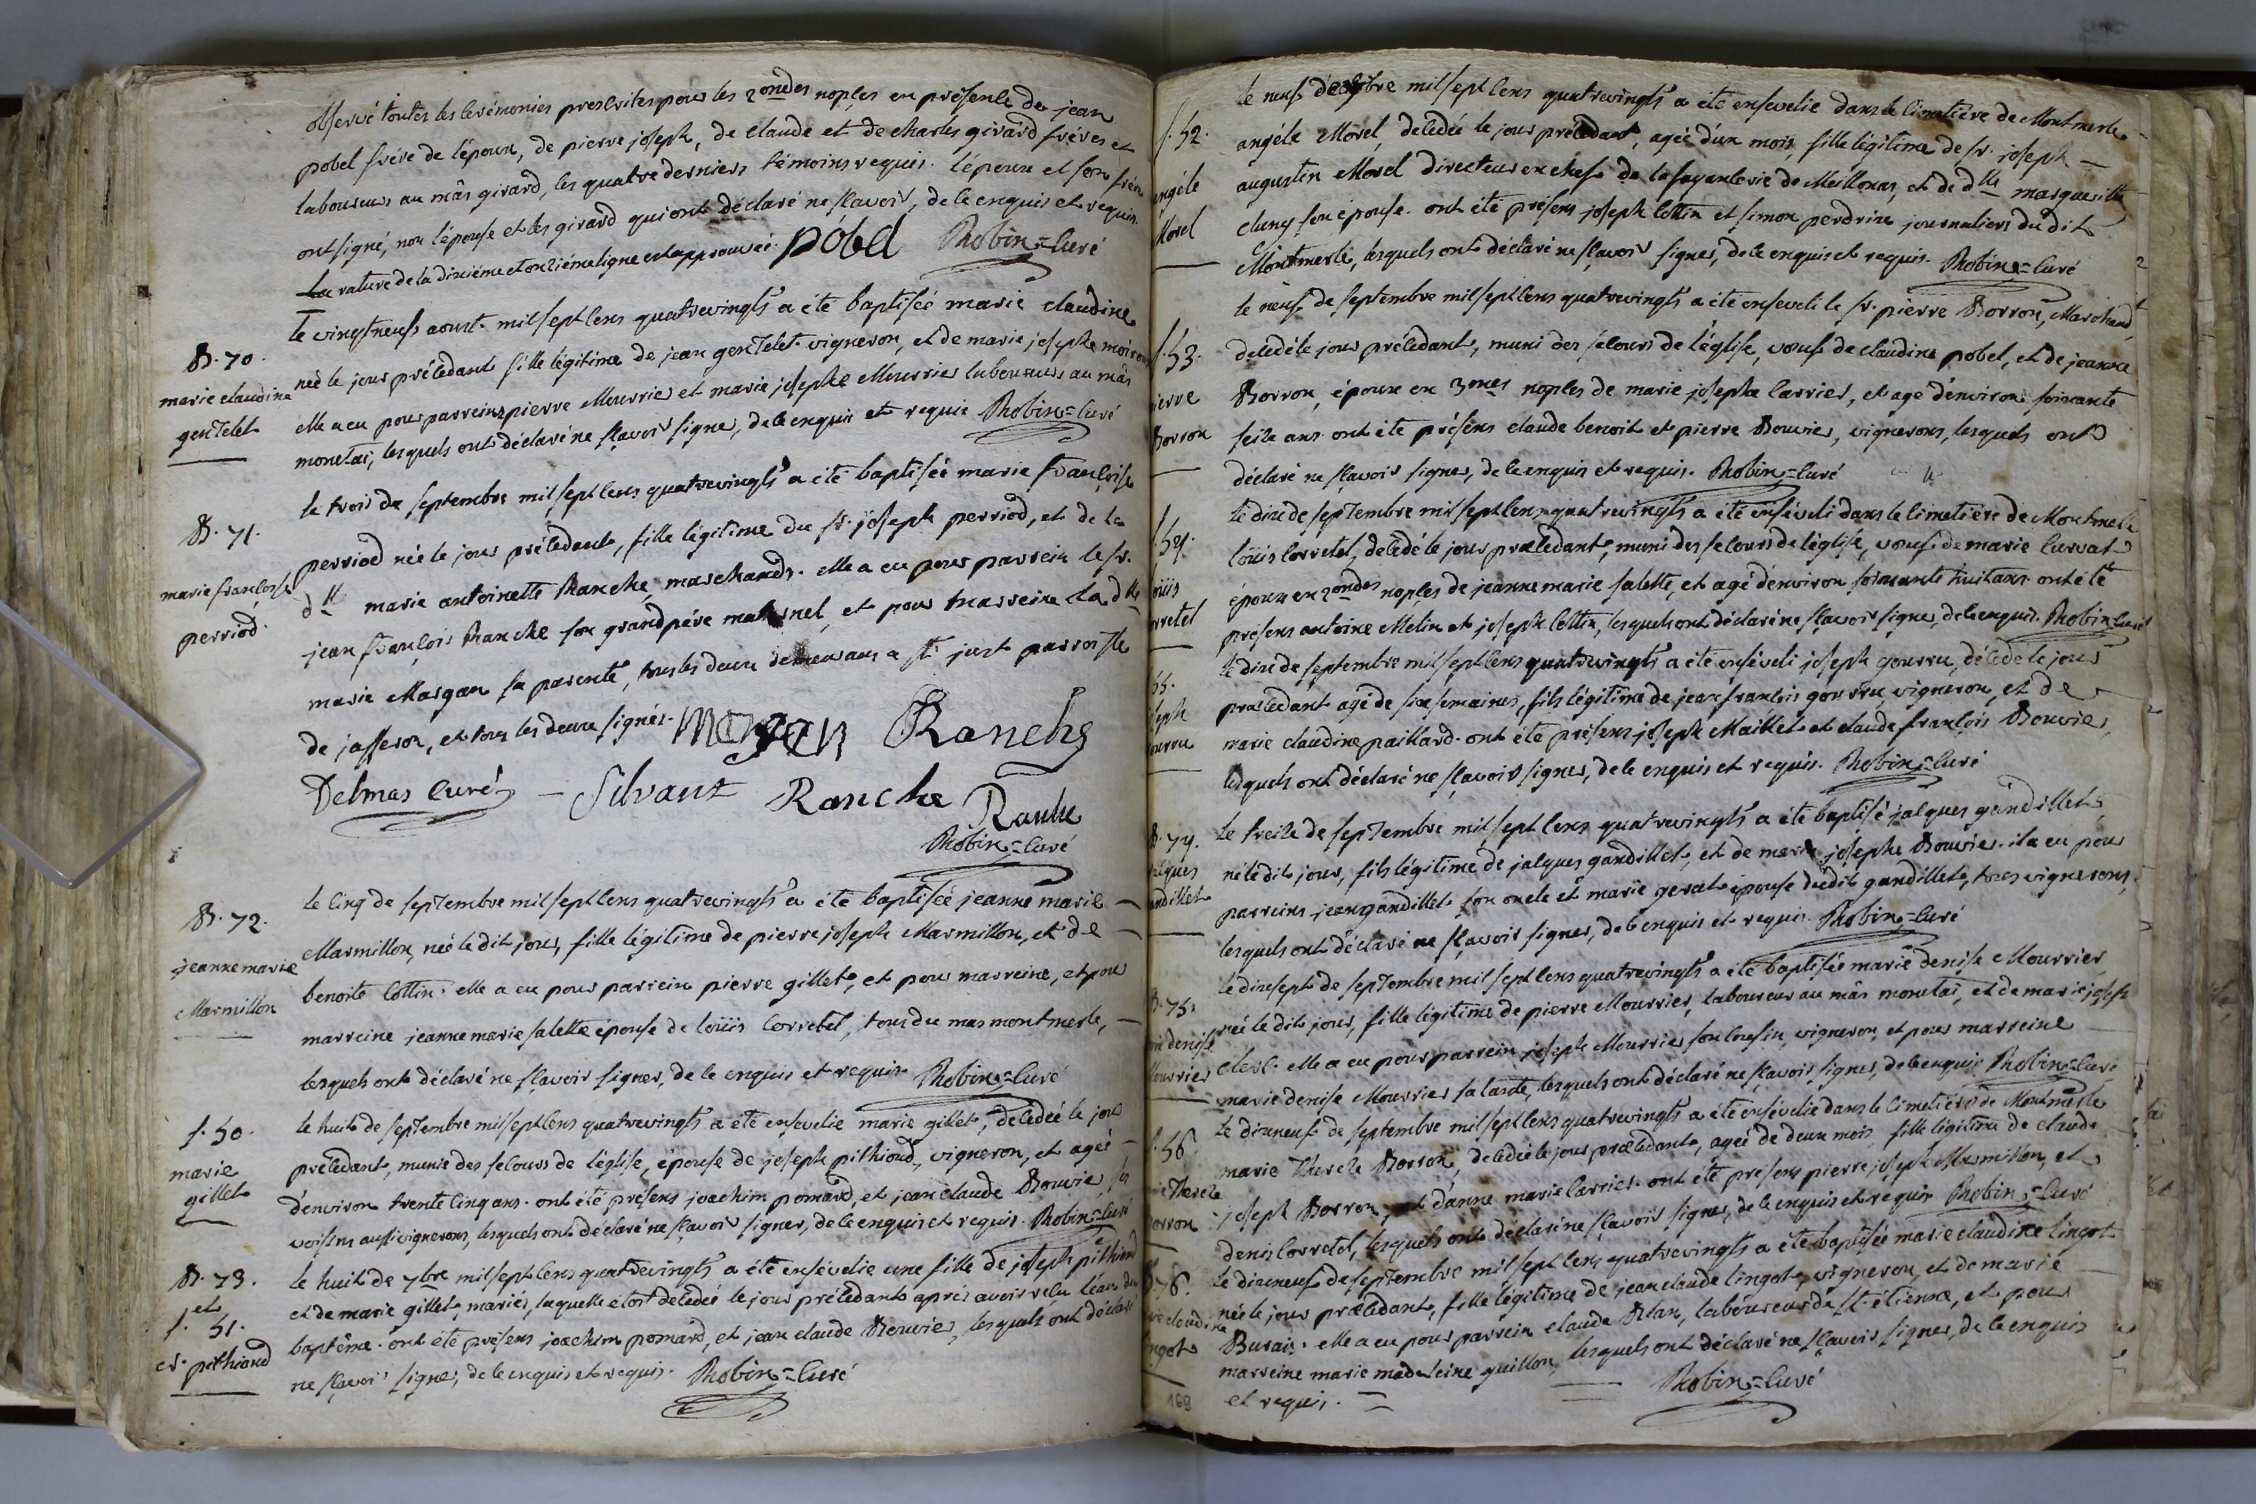 observé toutes les cérémonies prescrites pour les 2ondes noples en présence de jean
pobel frére de l'époux, de pierre joseph, de claude et de charles girard fréres et
laboureurs au mâs girard, les quatre derniers témoins requis. l'époux et son frére
ont signé, non l'épouse et les girard qui ont déclaré ne sçavoir, de ce enquis et requis.
La rature de la dixiéme et onziéme ligne est approuvée. pobel Robin=curé
B. 70.
marie claudine
gentelet
le vingt neuf aoust mil sept cens quatrevingts a été baptisée marie claudine
née le jour précedant fille légitime de jean gentelet vigneron, et de marie josephe moiron
elle a eu pour parreins pierre Mourrier et marie josephe Mourrier laboureurs au mâs
monetai, lesquels ont déclaré ne sçavoir signe, de ce enquis et requis Robin=curé
B. 71.
marie françoise
perriod.
le trois de septembre mil sept cens quatrevingts a été baptisée marie françoise
perriod née le jour précedant, fille légitime du sr. joseph perriod, et de la
dlle marie antoinette Ranche, marchands. elle a eu pour parrein le sr.
jean françois Ranche son grand pére maternel, et pour marreine la dlle
marie Margan sa parente, tous les deux demeurans a st. just parroisse
de jasseron, et tous les deux signés. Morgan Ranche
Delmas curé – Silvant Ranche Ranche
Robin=curé
B. 72.
jeanne marie
Marmillon
le cinq de septembre mil sept cens quatrevingts a été baptisée jeanne marie
Marmillon, née le dit jour, fille légitime de pierre joseph Marmillon, et de
benoite Cottin. elle a eu pour parrein pierre gillet, et pour marreine, et pour
marreine jeanne marie salette épouse de loüis Corretel, tous du mas montmerle,
lesquels ont déclaré ne sçavoir signer, de ce enquis et requis Robin=curé
s. 50.
marie
gillet
le huit de septembre mil sept cens quatrevingts a été ensevelie marie gillet, décedée le jour
précedant, munie des secours de l'église, épouse de joseph pithioud, vigneron, et agée
d'environ trente cinq ans. ont été présens joachim pomard, et jean claude Bouvier, ses
voisins aussi vignerons, lesquels ont déclaré ne sçavoir signer, de ce enquis et requis. Robin=curé
B. 73.
et
s. 51.
et pithioud
le huit de 7bre mil sept cens quatrevingts a été ensévelie une fille de joseph pithioud
et de marie gillet mariés, laquelle étoit décedée le jour précedant apres avoir reçu l'eau du
baptême. ont été présens joachim pomard, et jean claude Bouvier, lesquels ont déclaré
ne sçavoir signer, de ce enquis et requis. Robin=curé
s. 52.
angéle
Morel
le neuf de 7bre mil sept cens quatrevingts a été ensevelie dans le cimetière de Montmerle
angéle Morel, décedée le jour précedant, agée d'un mois, fille légitime de sr. joseph
augustin Morel directeur en chef de la fayancerie de Meillonas, et de dlle marguerithe
cluny son épouse. ont été présens joseph Cottin et simon perdrix journaliers du dit
Montmerle, lesquels ont déclaré ne sçavoir signer, de ce enquis et requis. Robin=curé
s. 53.
pierre
Borron
le neuf de septembre mil sept cens quatrevingts a été enseveli le sr. pierre Borron, Marchand,
décedé le jour précedant, muni des secours de l'église, vœuf de claudine pobel, et de jeanne
Borron, époux en 3mes noples de marie josephe Carrier, et agé d'environ soixante
seize ans. ont été présens claude benoit et pierre Bouvier, vignerons, lesquels ont
déclaré ne sçavoir signer, de ce enquis et requis. Robin=curé
s. 54.
loüis
orretel
Le dix de septembre mil sept cens quatrevingts a été enséveli dans le cimetière de Montmerle
loüis Corretel, décedé le jour præcedant, muni des secours de l'église, vœuf de marie Curvat
époux en 2ondes noples de jeanne marie salette, et agé d'environ soixante huit ans. ont été
présens antoine Metin et joseph Cottin, lesquels ont déclaré ne sçavoir signer, de ce enquis. Robin=curé
55.
seph
ourru
Le dix de septembre mil sept cens quatrevingts a été enséveli joseph gourru, décedé le jour
præcedant agé de six semaines, fils légitime de jean françois gourru, vigneron, et de
marie claudine paillard. ont été présens joseph Maillet et claude françois Bouvier,
lesquels ont déclaré ne sçavoir signer, de ce enquis et requis. Robin=curé
B. 74.
acques
andillet
Le treize de septembre mil sept cens quatrevingts a été baptisé jacques gandillet
né le dit jour, fils légitime de jacques gandillet, et de marie josephe Bouvier. il a eu pour
parreins jean gandillet son oncle et marie gerat épouse du dit gandillet, tous vignerons,
lesquels ont déclaré ne sçavoir signer, de ce enquis et requis. Robin=curé
B. 75.
denise
Mourrier
Le dixsept de septembre mil sept cens quatrevingts a été baptisée marie denise Mourrier
née le dit jour, fille légitime de pierre Mourrier, laboureur au mâs monetai, et de marie joseph
Clerc. elle a eu pour parrein joseph Mourrier son cousin, vigneron, et pour marreine
marie denise Mourrier sa tante, lesquels ont déclaré ne sçavoir signer, de ce enquis Robin=curé
s. 56.
Thereze
orron
Le dixneuf de septembre mil sept cens quatrevingts a été ensévelie dans le cimetière de Montmerle
marie Thereze Borron, décedée le jour præcedant, agée de deux mois, fille légitime de claude
joseph Borron, et d'anne marie Carrier. ont été présens pierre joseph Marmillon, et
denis Corretel, lesquels ont déclaré ne sçavoir signer, de ce enquis et requis Robin=curé
B. 76.
claudine
ngot
Le dixneuf de septembre mil sept cens quatrevingts a été baptisée marie claudine Lingot
née le jour præcedant, fille légitime de jean claude lingot, vigneron, et de marie
Burais. elle a eu pour parrein claude Blan, laboureur de st. étienne, et pour
marreine marie madeleine guillon, lesquels ont déclaré ne sçavoir signer, de ce enquis
et requis. Robin=curé
169